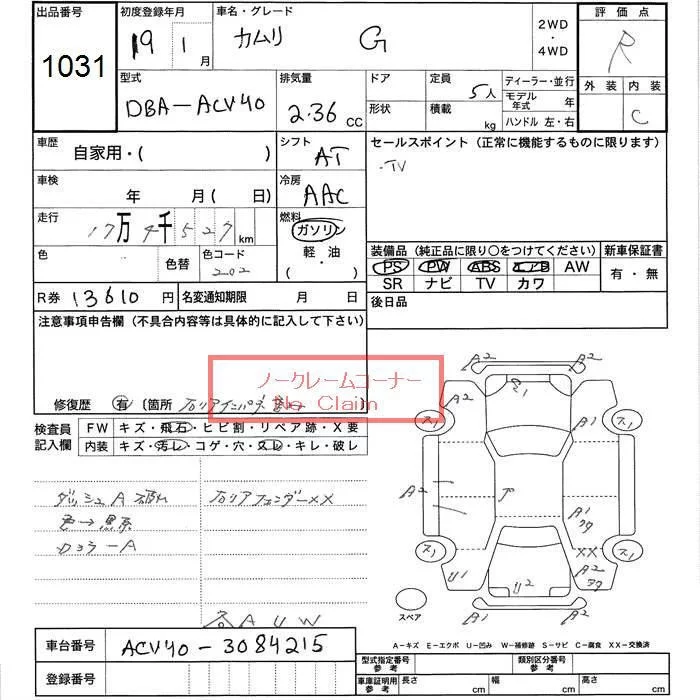 出品番号 初度登録年月 車名・グレード 2WD ・ 4WD 評価点
1031 19 1月 カムリ G R
型式 排気量 ドア 定員 ディーラー・並行 外装 内装
DBA-ACV40 2.36 CC 形状 5人 積載 kg モデル年式 年 C
ハンドル 左・右
車歴 自家用・( ) シフト AT セールスポイント (正常に機能するものに限ります)
・TV
車検 年 月 ( 日) 冷房 AAC
走行 17万4千527 km 燃料 ガソリン
軽・油
( )
色 色替 色コード 202
装備品 (純正品に限り○をつけてください) 新車保証書
PS PW ABS エアB AW 有・無
SR ナビ TV カワ
R券 13610円 名変通知期限 月 日 後日品
注意事項申告欄 (不具合内容等は具体的に記入して下さい)
ノークレームコーナー
No Claim
修復歴 有 〔箇所 右リアインパネ 〕
検査員記入欄 FW キズ・飛石・ヒビ割・リペア跡・X要
内装 キズ・汚レ・コゲ・穴・スレ・キレ・破レ
ダッシュA 右リアフェンダーXX
色→黒系
ロコラーA
各AUW
A2 A2
A2 S1
ス1 A1 ス1
A2 ア A1
ス1 XX ス1
U1 U2 A2
A1 A2
スペア
A-キズ E-エクボ U-凹み W-補修跡 S-サビ C-腐食 XX-交換済
車台番号 ACV40-3084215
型式指定番号 参考 類別区分番号 参考
登録番号 車庫証明用 参考 長さ cm 幅 cm 高さ cm